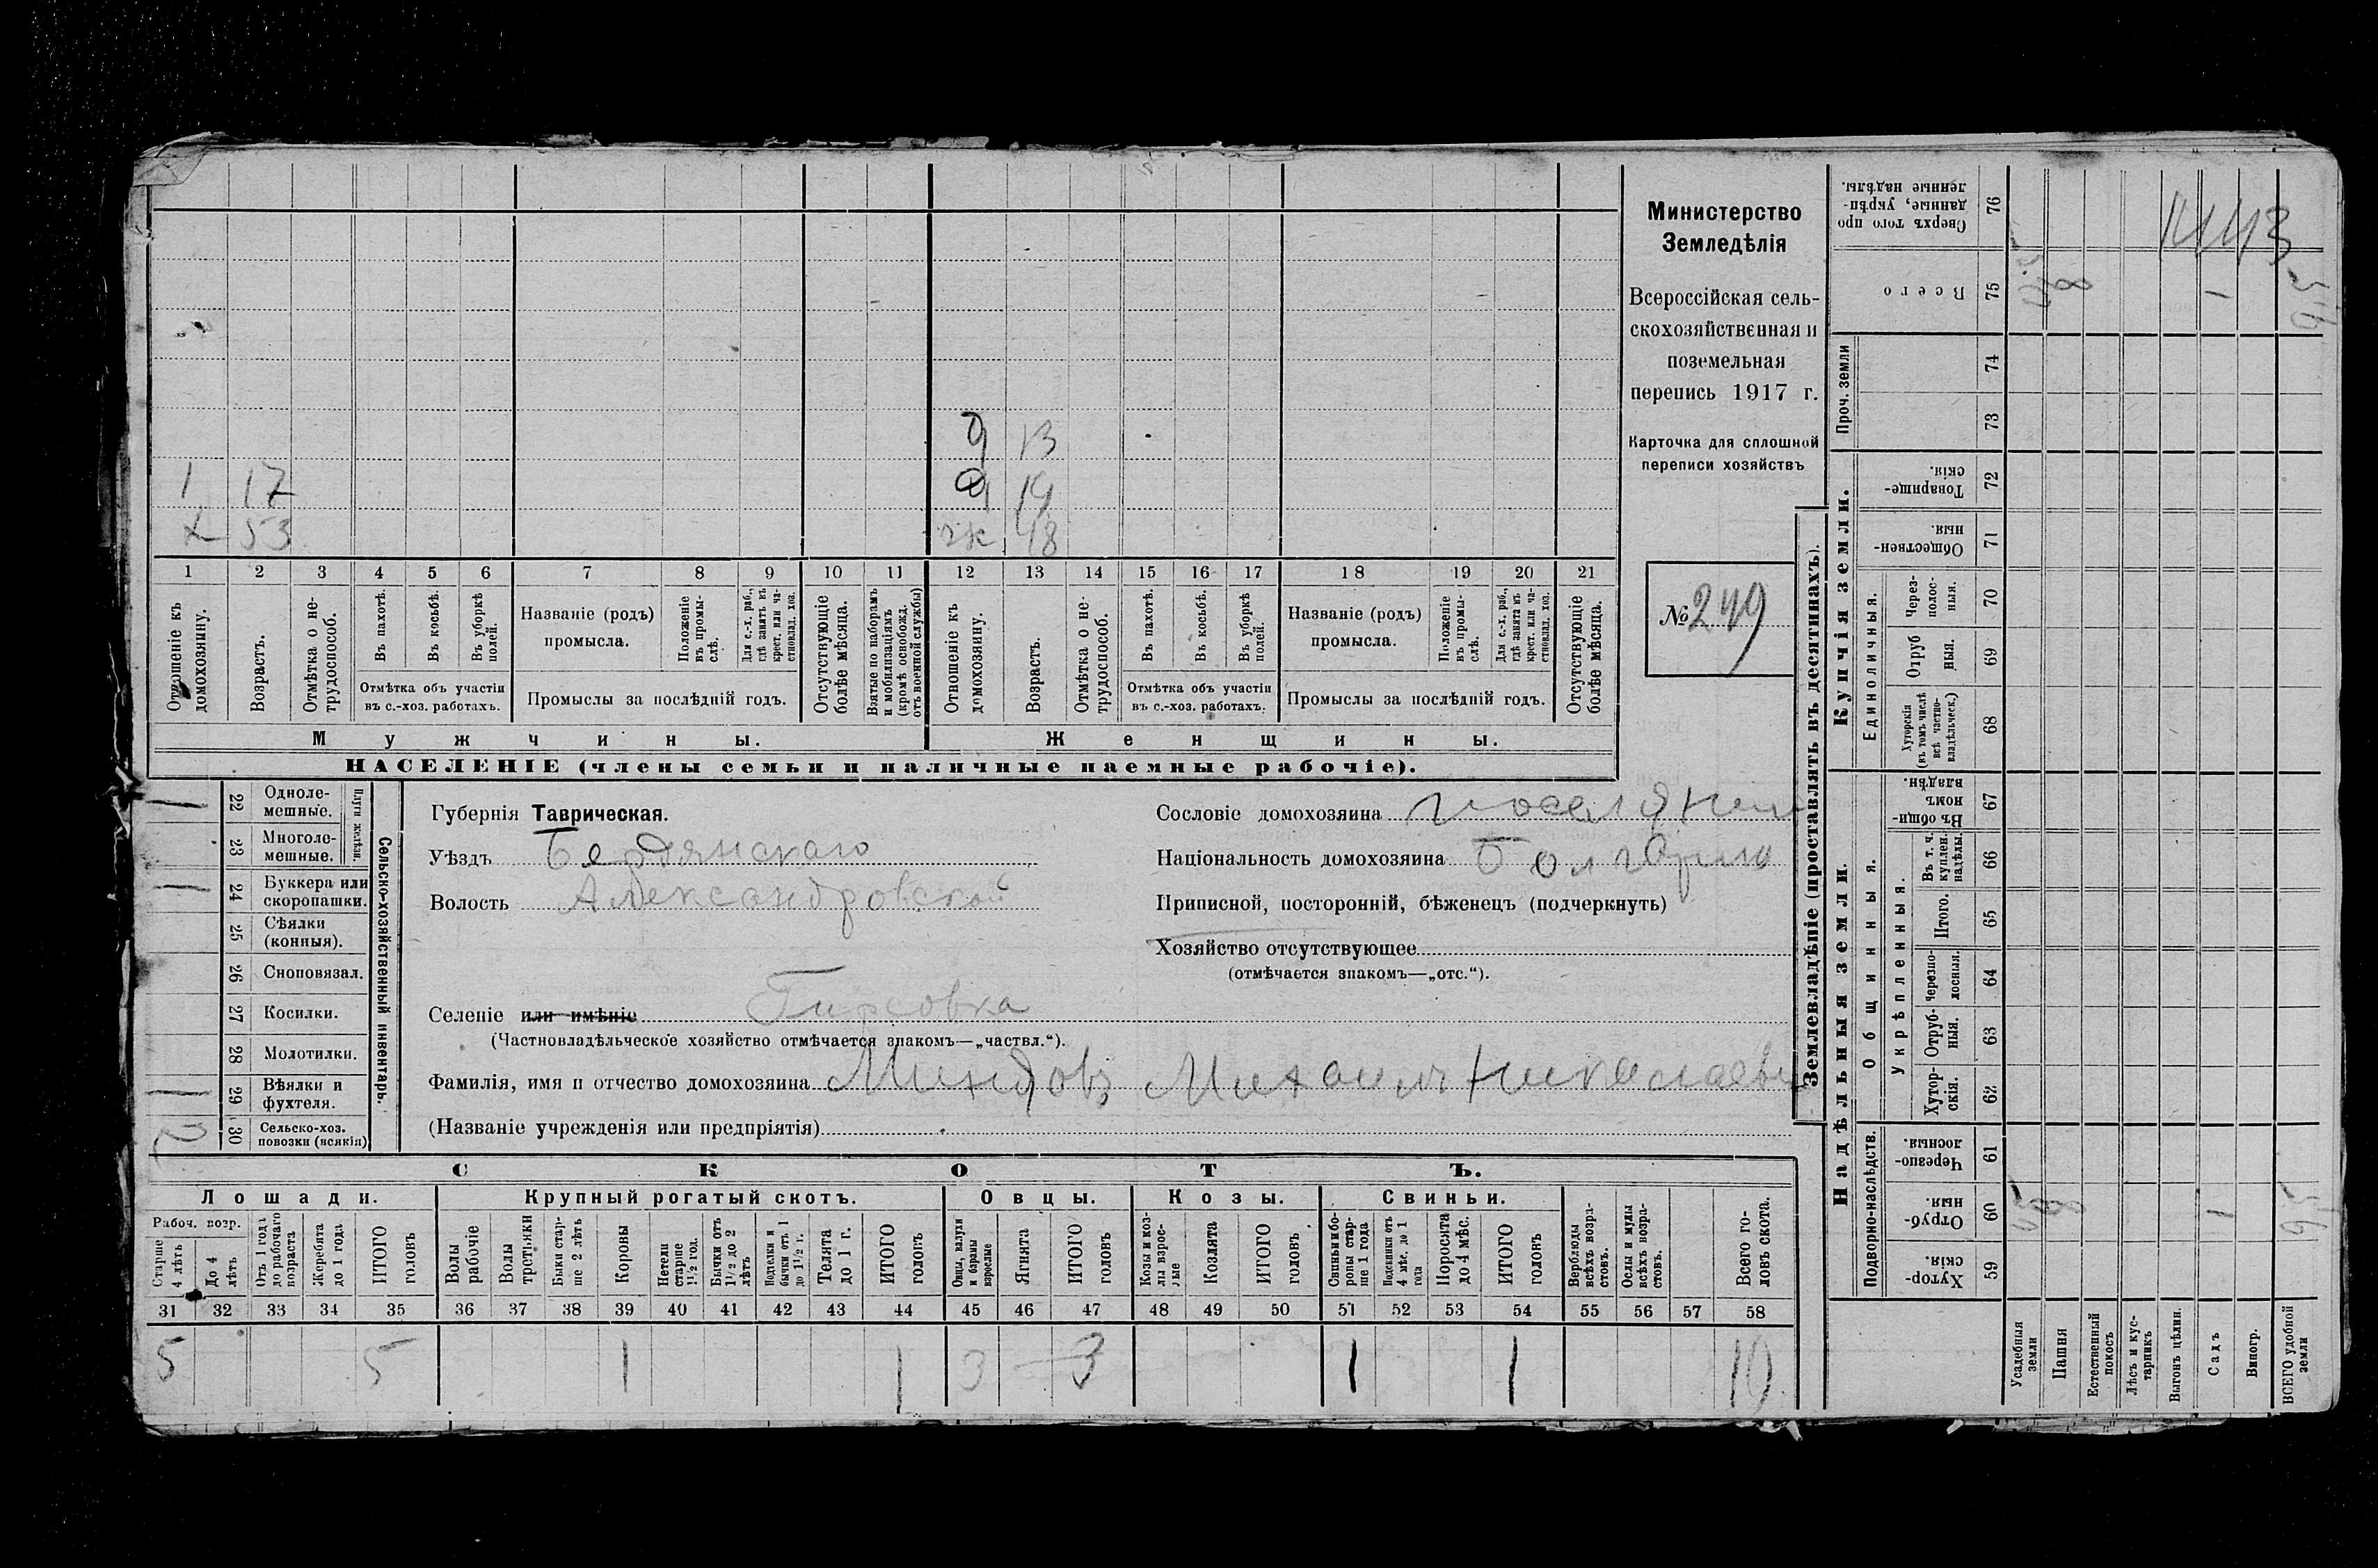 9 13
1 17 9 19
х 53 ж 48
1 2 3 4 5 6 7 8 9 10 11 12 13 14 15 16 17 18 19 20 21
Отношеніе къ домохозяину.
Возрастъ.
Отмѣтка о не-
трудоспособ.
Въ пахотѣ.
Въ косьбѣ.
Въ уборкѣ
полей.
Отмѣтка объ участіи
въ с.-хоз. работахъ.
Названіе (родъ)
промысла.
Положеніе
въ промы-
слѣ.
Для с.-х. раб.,
гдѣ занятъ въ
крест. или ча-
стновлад. хоз.
Промыслы за послѣдній годъ.
Отсутствующіе
болѣе мѣсяца.
Взятые по наборамъ
и мобилизаціямъ
(кромѣ освобожд.
отъ военной службы)
Отношеніе къ
домохозяину.
Возрастъ.
Отмѣтка о не-
трудоспособ.
Въ пахотѣ.
Въ косьбѣ.
Въ уборкѣ
полей.
Отмѣтка объ участіи
въ с.-хоз. работахъ.
Названіе (родъ)
промысла.
Положеніе
въ промы-
слѣ.
Для с.-х. раб.,
гдѣ занята въ
крест. или ча-
стновлад. хоз.
Промыслы за послѣдній годъ.
Отсутствующіе
болѣе мѣсяца.
Мужчины. Женщины.
НАСЕЛЕНІЕ (члены семьи и наличные наемные рабочіе).
Министерство
Земледѣлія
Всероссійская сель-
скохозяйственная и
поземельная
перепись 1917 г.
Карточка для сплошной
переписи хозяйствъ
№ 249
1 22 Одноле-
мешные.
23 Многоле-
мешные.
Плуги желѣзн.
1 24 Буккера или
скоропашки.
25 Сѣялки
(конныя).
26 Сноповязал.
27 Косилки.
28 Молотилки.
1 29 Вѣялки и
фухтеля.
2 30 Сельско-хоз.
повозки (всякія)
Сельско-хозяйственный инвентарь.
Губернія Таврическая.
Уѣздъ Бердянскаго
Волость Александровской
Сословіе домохозяина поселянин
Національность домохозяина Болгарин
Приписной, посторонній, бѣженецъ (подчеркнуть)
Хозяйство отсутствующее
(отмѣчается знакомъ—„отс.“).
Селеніе или имѣніе Гирсовка
(Частновладѣльческое хозяйство отмѣчается знакомъ—„частвл.“).
Фамилія, имя и отчество домохозяина Миндовъ Михаилъ Николаеви
(Названіе учрежденія или предпріятія)
СКОТЪ.
Лошади. Крупный рогатый скотъ. Овцы. Козы. Свиньи.
Рабоч. возр.
Старше
4 лѣтъ
До 4
лѣтъ
Отъ 1 года
до рабочаго
возраста
Жеребята
до 1 года
ИТОГО
головъ
Волы
рабочіе
Волы
третьяки
Быки стар-
ше 2 лѣтъ
Коровы
Нетели
старше
1½ год.
Бычки отъ
1½ до 2
лѣтъ
Подтелки и
бычки отъ 1
до 1½ г.
Телята
до 1 г.
ИТОГО
головъ
Овцы, валухи
и бараны
взрослые
Ягнята
ИТОГО
головъ
Козы и коз-
лы взрос-
лые
Козлята
ИТОГО
головъ
Свиньи бо-
ровы стар-
ше 1 года
Подсвинки отъ
4 мѣс. до 1
года
Поросята
до 4 мѣс.
ИТОГО
головъ
Верблюды
всѣхъ возра-
стовъ.
Ослы и мулы
всѣхъ возра-
стовъ.
Всего го-
ловъ скота.
31 32 33 34 35 36 37 38 39 40 41 42 43 44 45 46 47 48 49 50 51 52 53 54 55 56 57 58
5 5 1 1 3 3 1 1 10
Землевладѣніе (проставлять въ десятинахъ).
Надѣльныя земли. Купчія земли. Проч. земли
Подворно-наслѣдств.
Общинныя.
Укрѣпленныя.
Единоличныя.
Хутор-
скія. 59
Отруб-
ныя. 60
Черезпо-
лосныя. 61
Хутор-
скія. 62
Отруб-
ныя. 63
Черезпо-
лосныя. 64
Итого. 65
Въ т. ч.
куплен.
надѣлы. 66
Въ общи-
номъ
владѣн. 67
Хуторскія
(въ томъ числѣ
всѣ частно-
владѣльческ.) 68
Отруб
ныя. 69
Через-
полос-
ныя. 70
Обществен-
ныя. 71
Товарище-
скія. 72
73
74
Всего 75
Сверхъ того про
данные, укрѣп-
ленные надѣлы. 76
Усадебныя
земли
Пашня
Естественный
покосъ
Лѣсъ и кус-
тарникъ
Выгонъ цѣлин.
Садъ
Виногр.
ВСЕГО удобной
земли
8 1
8 1